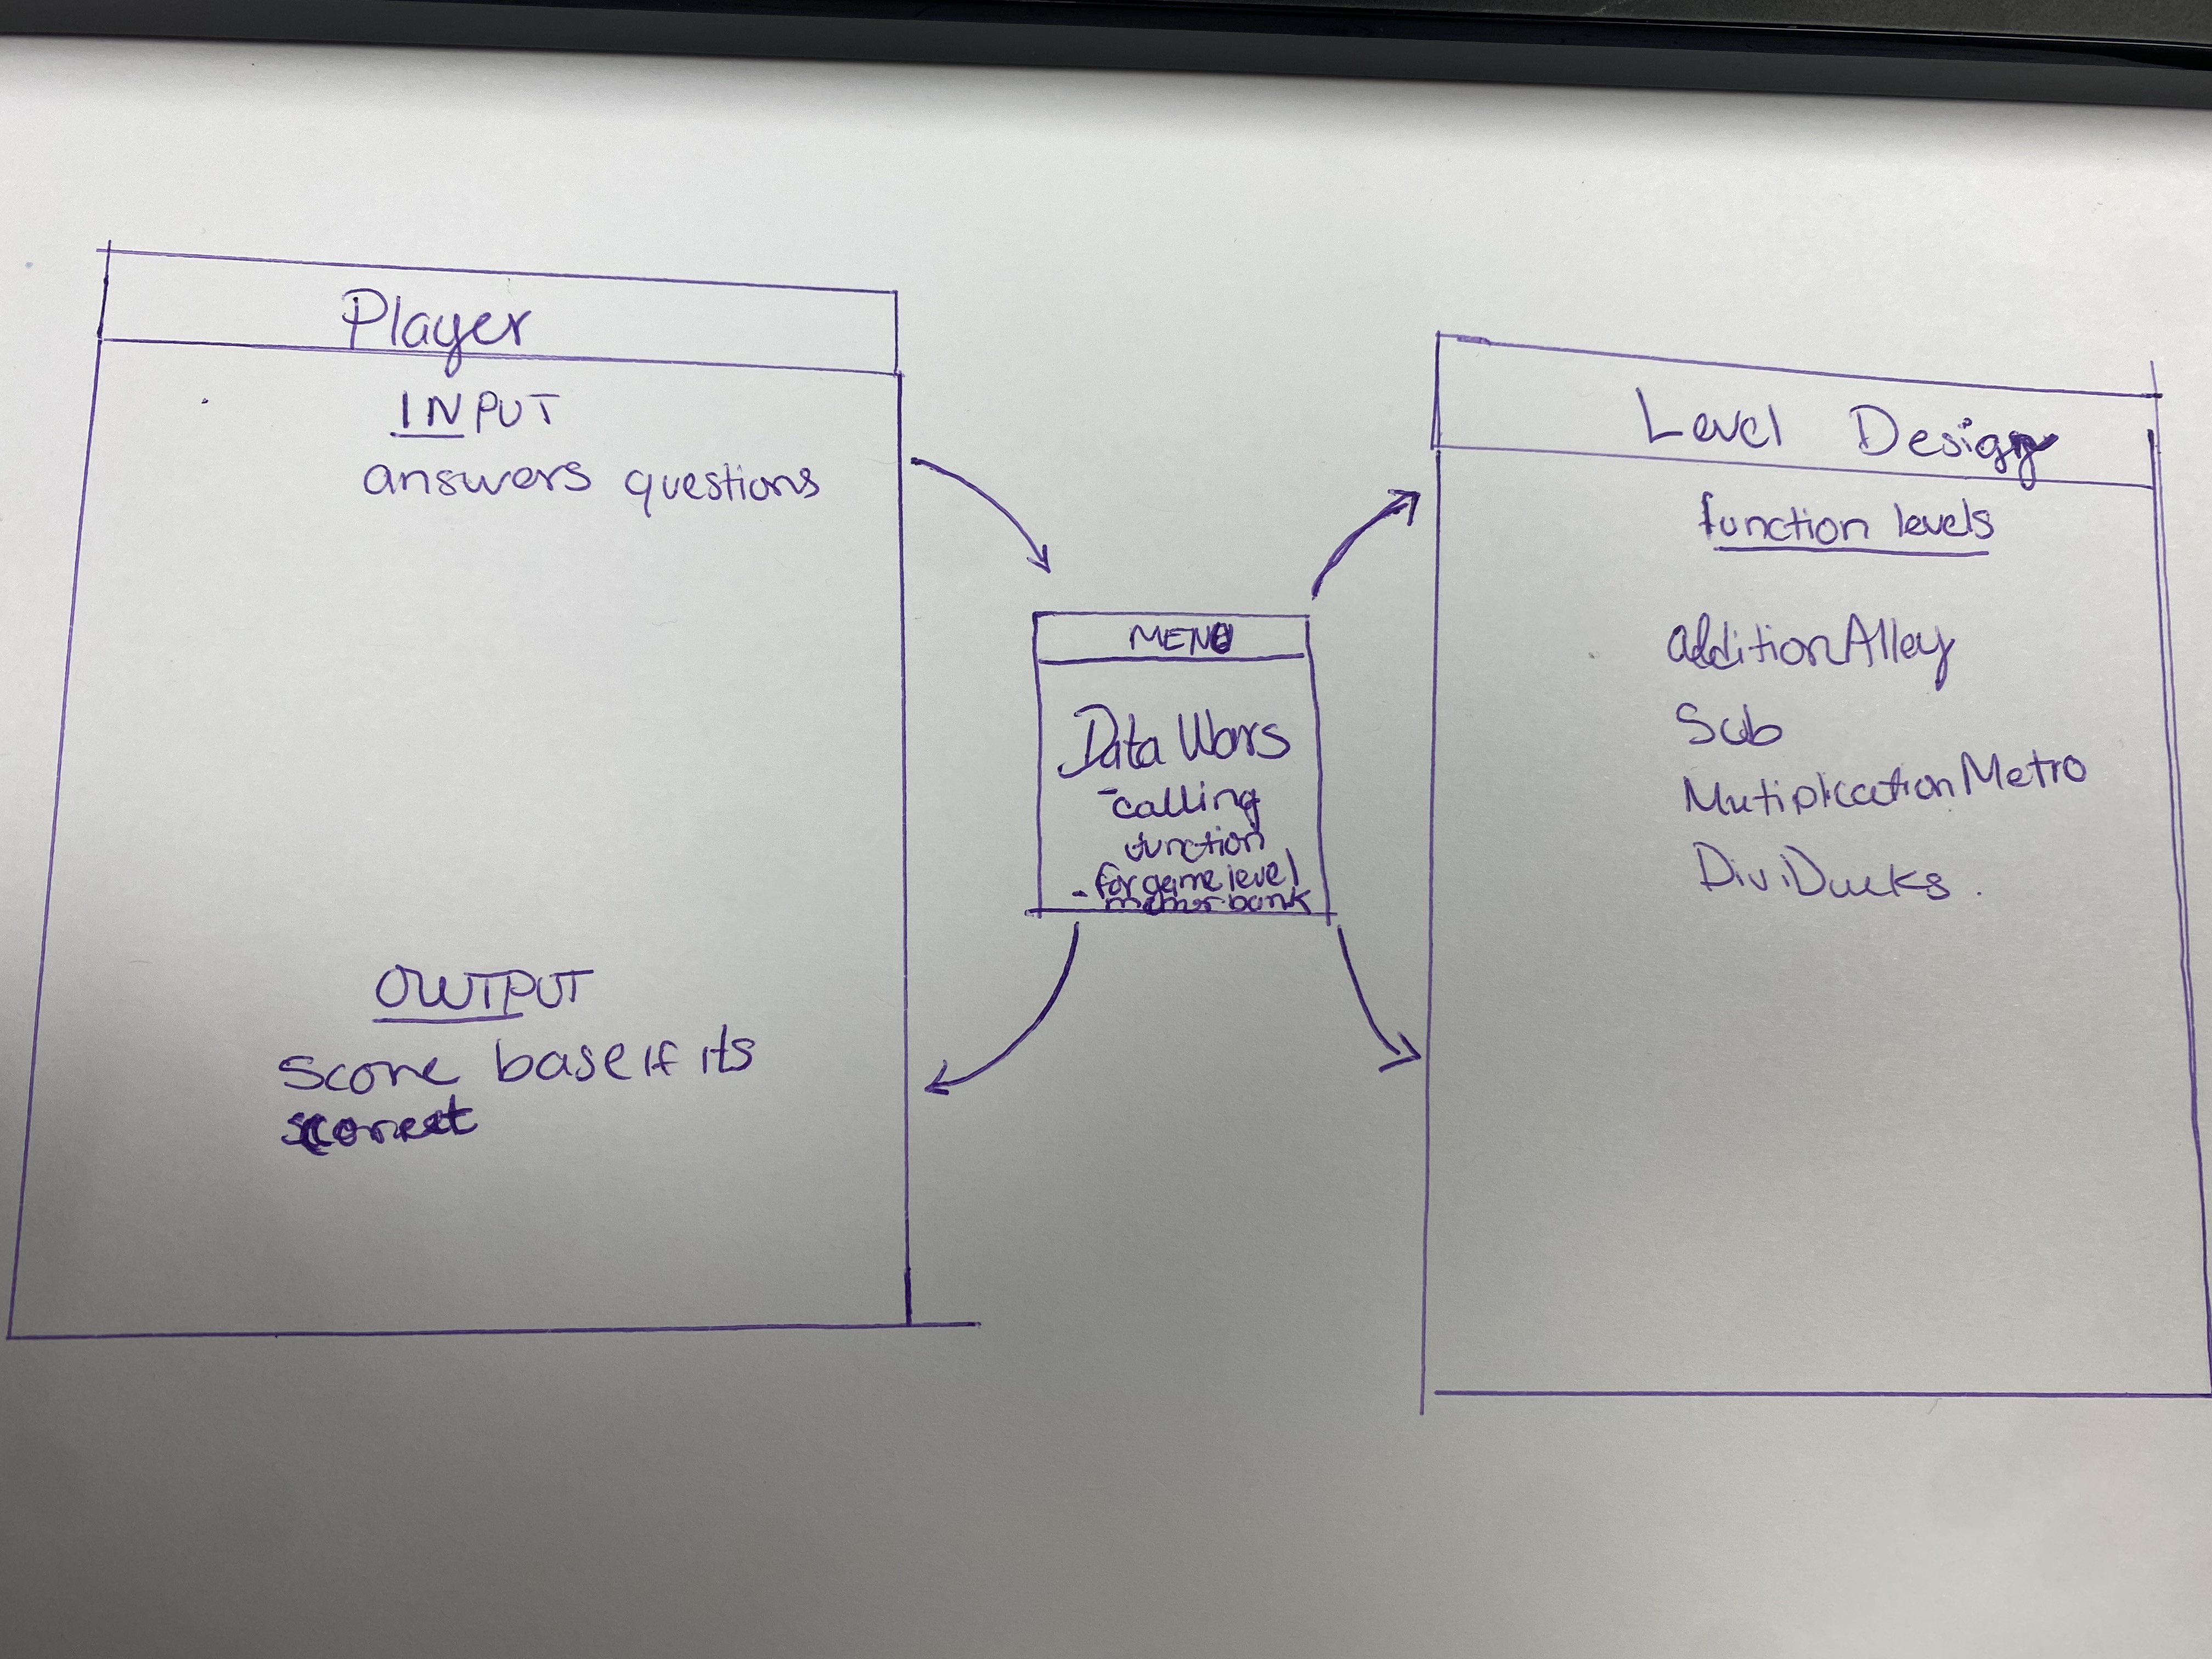 Player
INPUT
answers questions
OUTPUT
Score base if its
correct
MENU
Data Wars
- calling
function
- for game level
Level Design
function levels
additionAlley
Sub
MutiplicationMetro
DiviDucks.